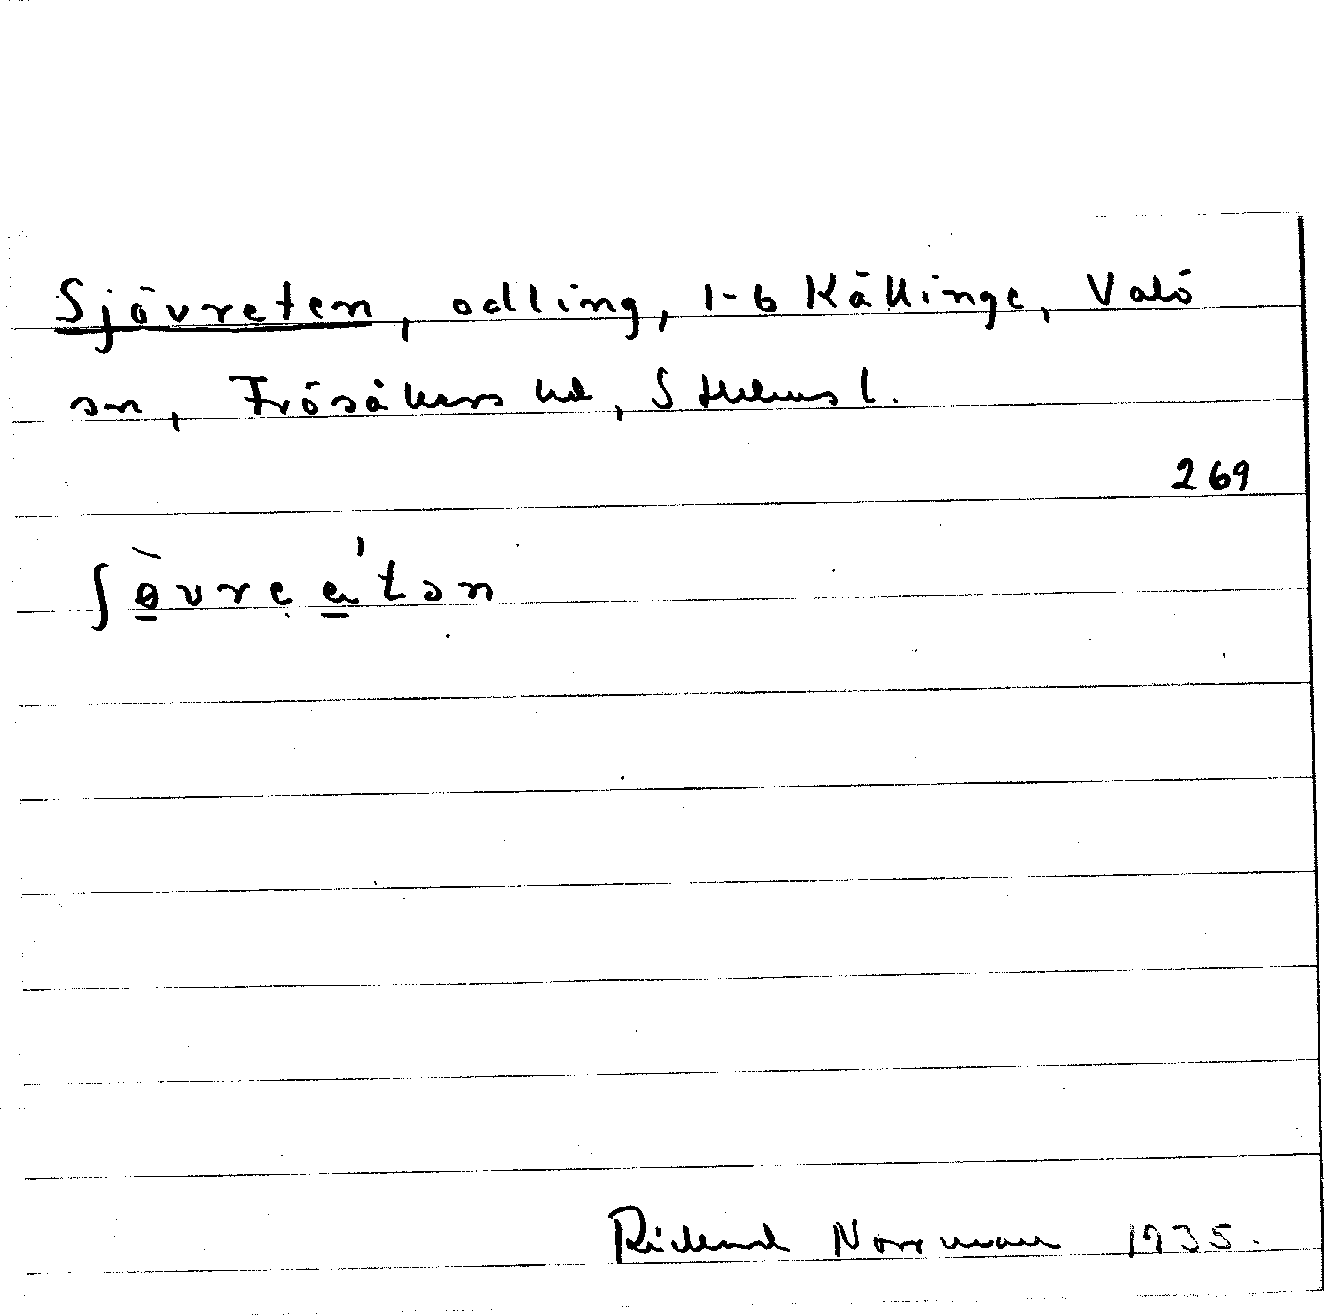 Sjövreten, odling, 1-6 Källinge, Valö
sn, Frösåkers hd, Sthlms l.
269
ʃø̀vreɐ̯'tən
Richard Norrman 1935.